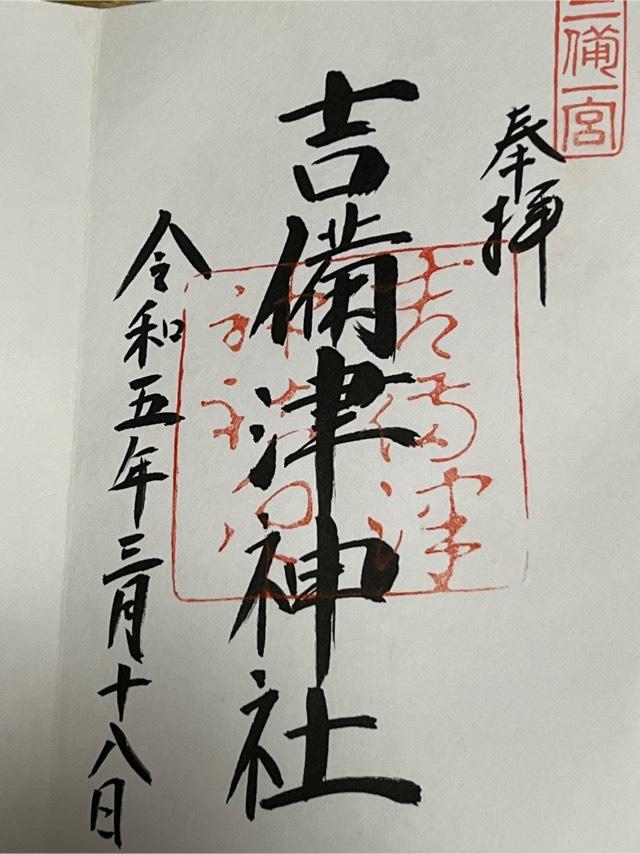 三備一宮
奉拝
吉備津神社
吉備津
令和五年三月十八日